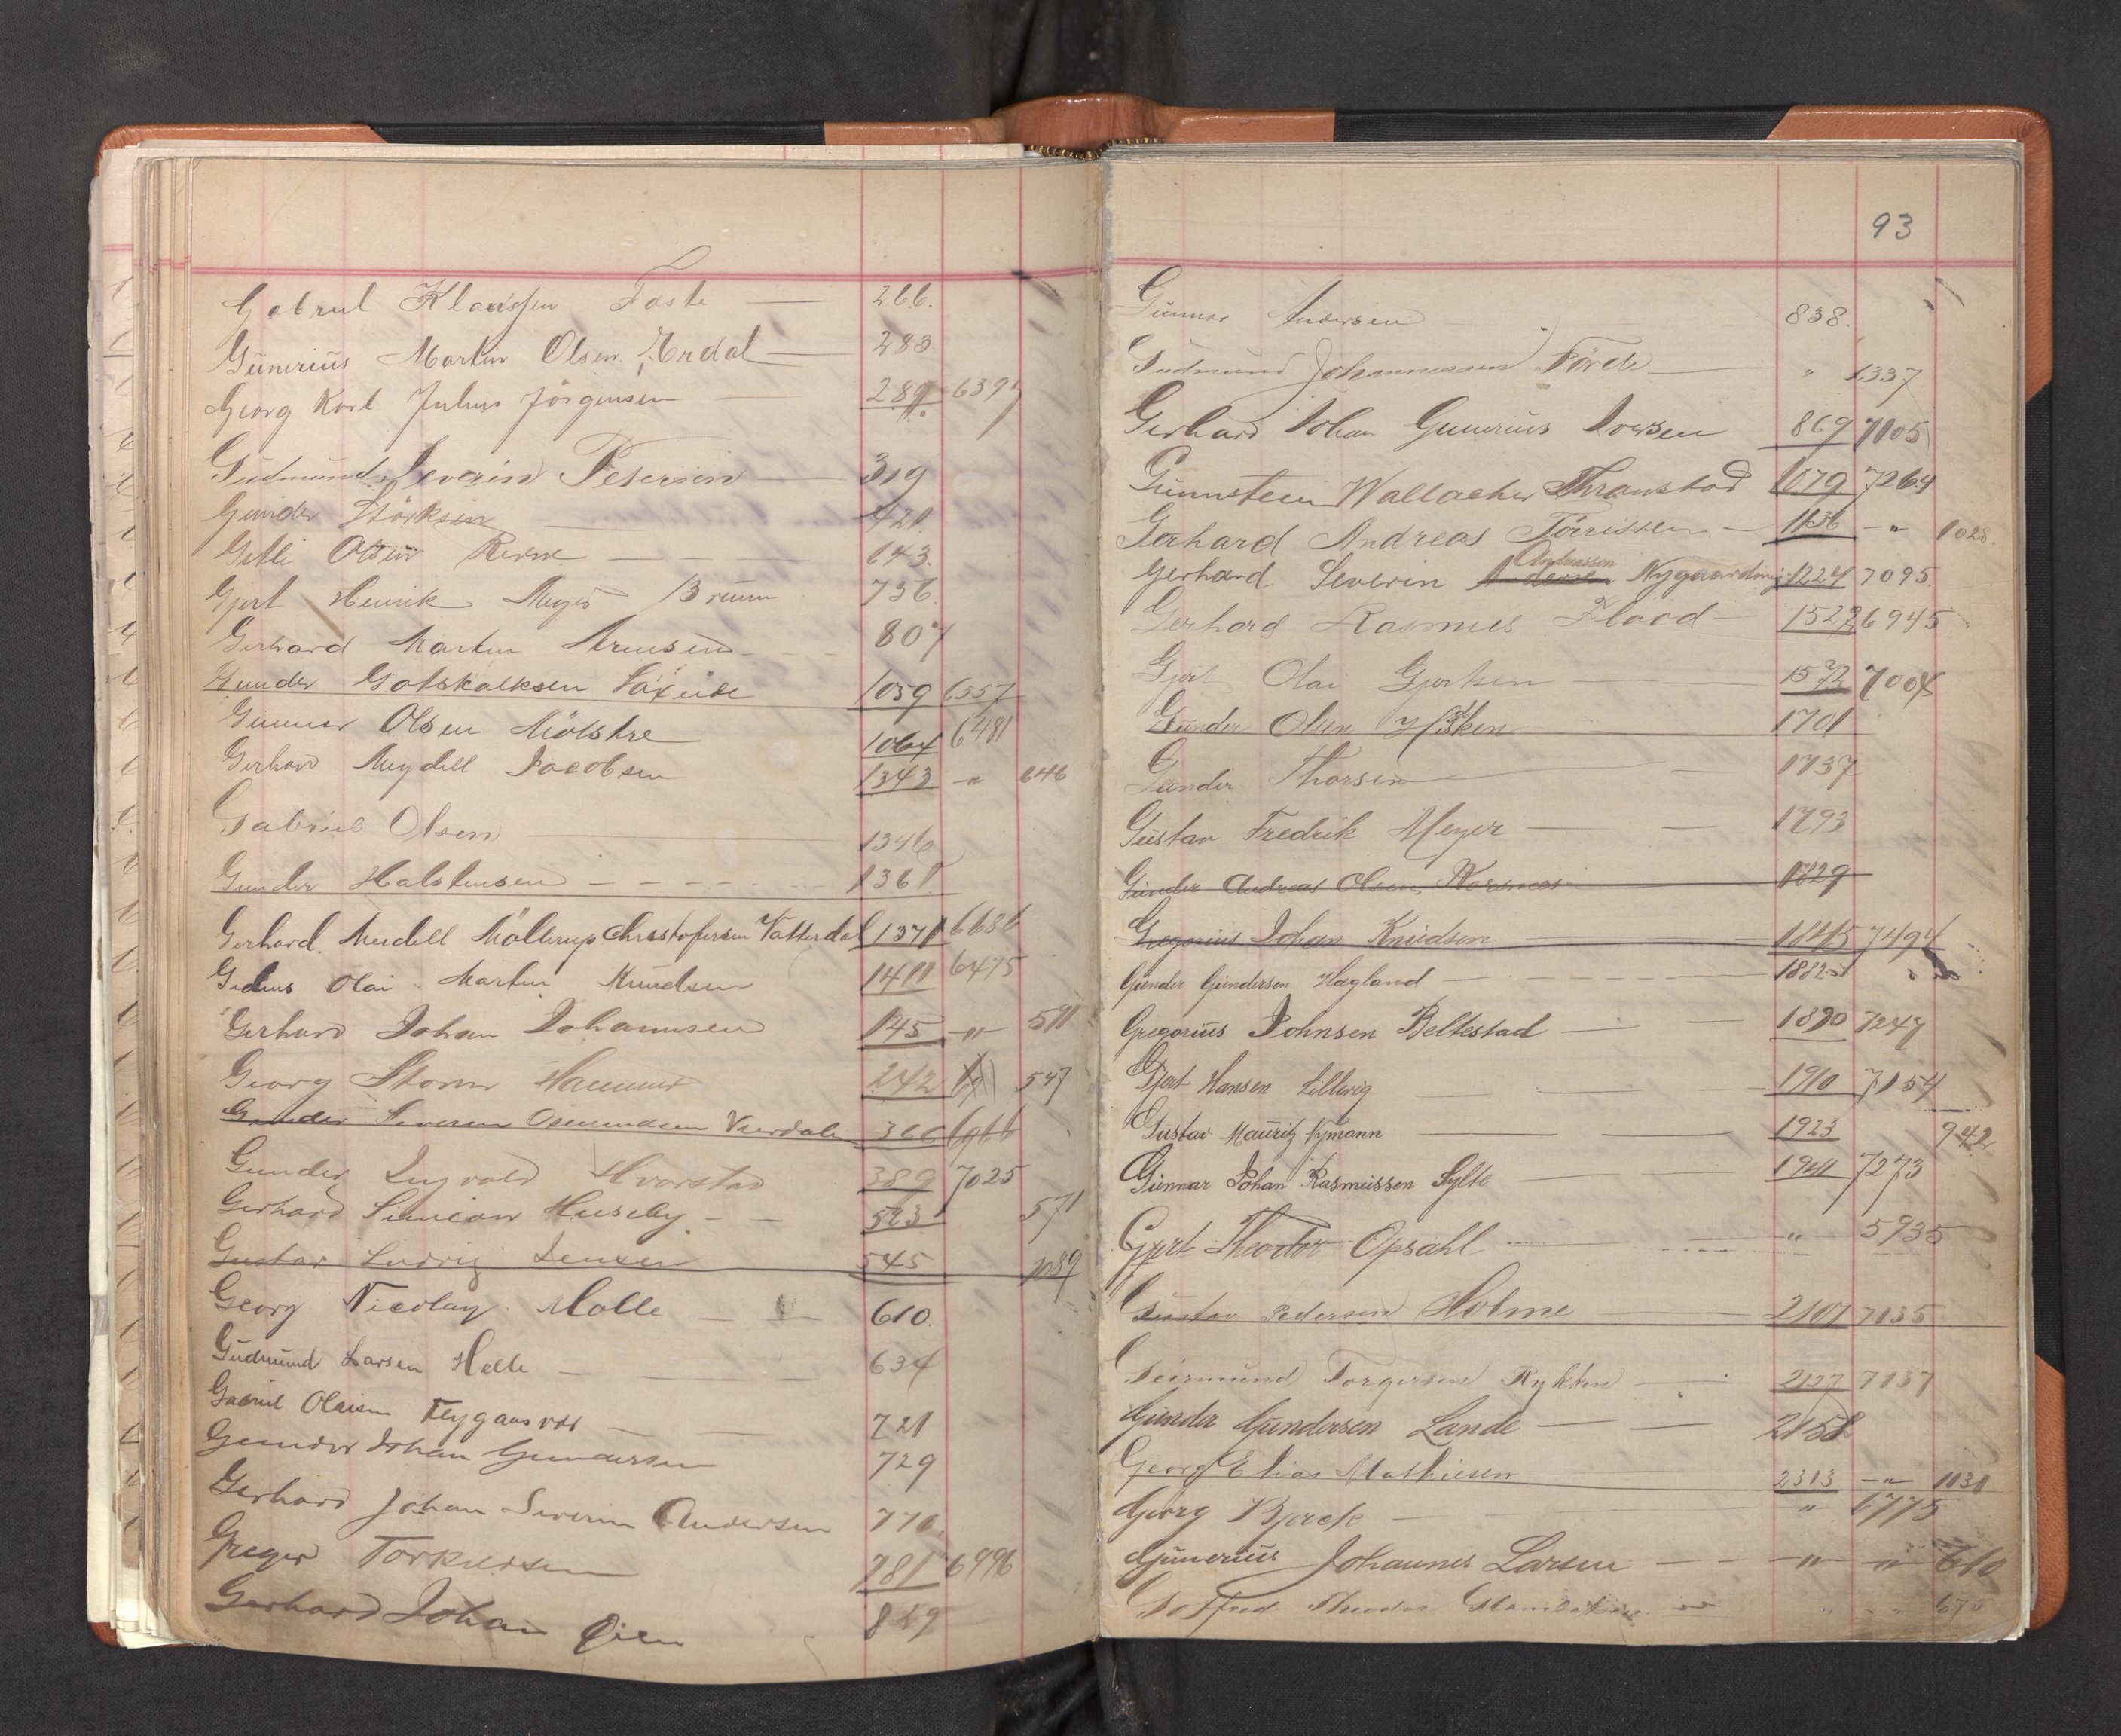 Gabriel Klaussen Foste — 266.
Gunerius Martin Olsen Årdal — 283
Georg Karl Julius Jörgensen — 289. 6391
Gudmund Severin Petersen — 319
Gunder Störksen — 421
Gitli Olsen — — 643.
Gjert Henrik Meyer Bruun 736.
Gerhard Martin Arnesen 807
Gunder Gotskalksen Saxeide 1059 6557
Gunnar Olsen Mölstre 1064 6481
Gerhard Meydell Jacobsen 1343 " 646
Gabriel Olsen — 1346
Gunder Halstensen — 1361
Gerhard Meidell Möllerup Christofersen Vatterdal 1371 6686
Olai Martin Knudsen 1411 6475
Gerhard Johan Johannesen 145 " 591
Georg Storm Hammer 242 547
Gunder Severin Osmundsen 366 6966
Gunder Ingvald Hvarstad 389 7025
Gerhard Simeon Huseby — 523 571
Gustav Ludvig Jensen 545 1089
Georg Nicolay Molle — 610.
Gudmund Larsen Helle — 634
Gabriel Olaisen Teygaasvär — 721
Gunder Johan Gundersen 729
Gerhard Johan Severin Andersen 770.
Greger Torkildsen 781 6996
Gerhard Johan Öien 849
93
Gunnar Andersen 838.
Gudmund Johannessen Förde — " 1337
Gerhard Johan Gunerius Iversen 869 7105
Gunnstein Wallacher Thranstad 1079 7264
Gerhard Andreas Törrissen — 1136 — " 1028.
Andreassen
Gerhard Severin Andersen Nygaardsvig 1224 7095.
Gerhard Rasmus Flaad — 1522 6945
Gjert Olai Gjertsen — 1572 7004
Gunder Olsen Hisken 1701
Gunder Thorsen — 1737
Gustav Fredrik Meyer — — 1793
Gunder Andreas Olsen Warnes 1829
Gregorius Johan Knudsen — 1845 7494
Gunder Gundersen Hagland — — 1882
Gregorius Johnsen Beltestad — — 1890 7247
Gjert Hansen Lillevig — — 1910 7154
Gustav Mauritz Nymann — — 1923 942.
Gunnar Johan Rasmussen Sylte — 1941 7273
Gjert Theodor Opsahl — " 5935
Gustav Pedersen Holme — 2101 7135
Geirmund Torgersen Rykken — 2127 7137
Gunder Gundersen Lande — — 2158
Georg Elias Mathiesen 2313 — " 1131
Georg Bjerck — " 6775
Gunerius Johannes Larsen — — " — " — 610
Gotfred Theodor " " 670